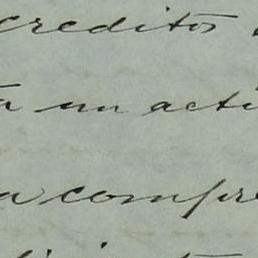 creditos
un acti
a compre